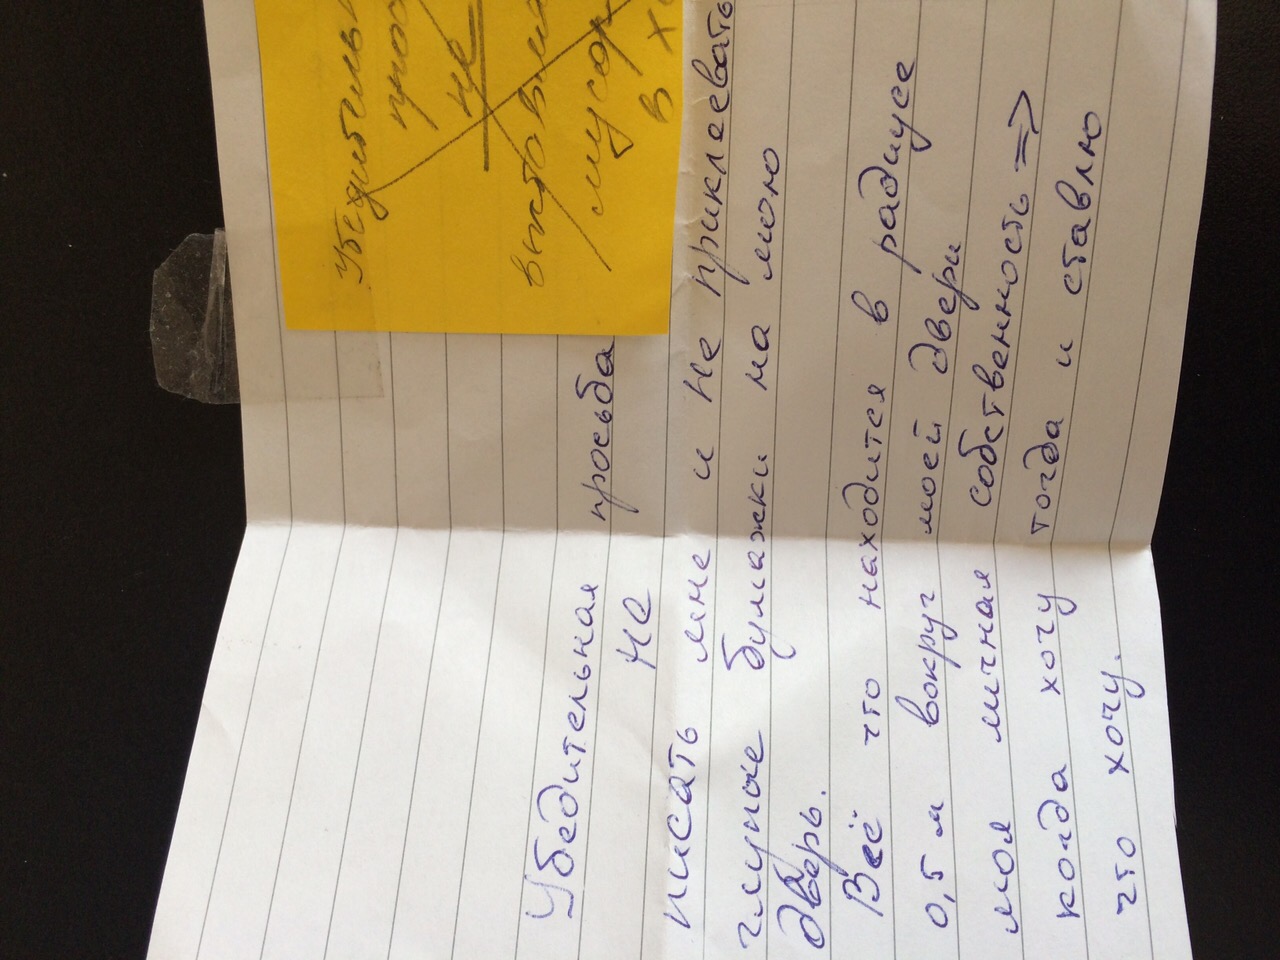 Убедительн
прос
не
выставля
мусор
в хо
Убедительная просьба
не
писать мне и не приклеевать
глупые бумажки на мою
дверь.
Всё что находится в радиусе
0,5 м вокруг моей двери
моя личная собственность =>
когда хочу тогда и ставлю
что хочу.